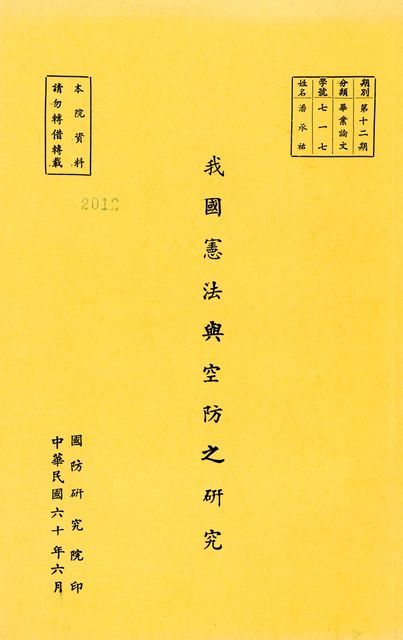 期別 第十二期
分類 畢業論文
學號 七一七
姓名 潘承祐
本院資料
請勿轉借轉載
2012
我國憲法與空防之研究
國防研究院印
中華民國六十年六月